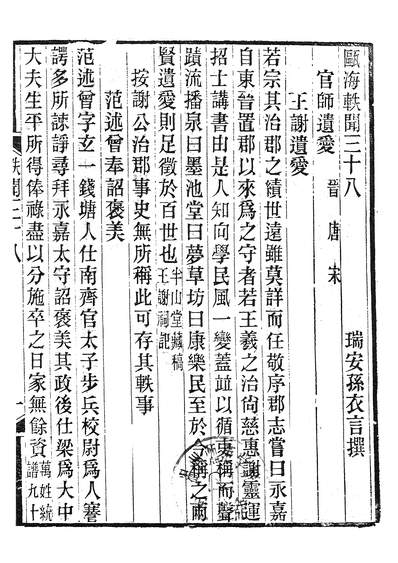 甌海軼聞三十八 瑞安孫衣言撰
官師遺愛 晉 唐 宋
王謝遺愛
若宗其治郡之績世遠雖莫詳而任敬序郡志嘗曰永嘉
自東晉置郡以來爲之守者若王羲之治尚慈惠謝靈運
招士講書由是人知向學民風一變蓋並以循吏稱而聲
蹟流播泉曰墨池堂曰夢草坊曰康樂民至於今稱之兩
賢遺愛則足徵於百世也半山堂藏稿王謝祠記
按謝公治郡事史無所稱此可存其軼事
范述曾奉詔褒美
范述曾字玄一錢塘人仕南齊官太子步兵校尉爲人謇
諤多所諫諍尋拜永嘉太守詔褒美其政後仕梁爲大中
大夫生平所得俸祿盡以分施卒之日家無餘資萬姓統譜九十
軼聞三十八 一